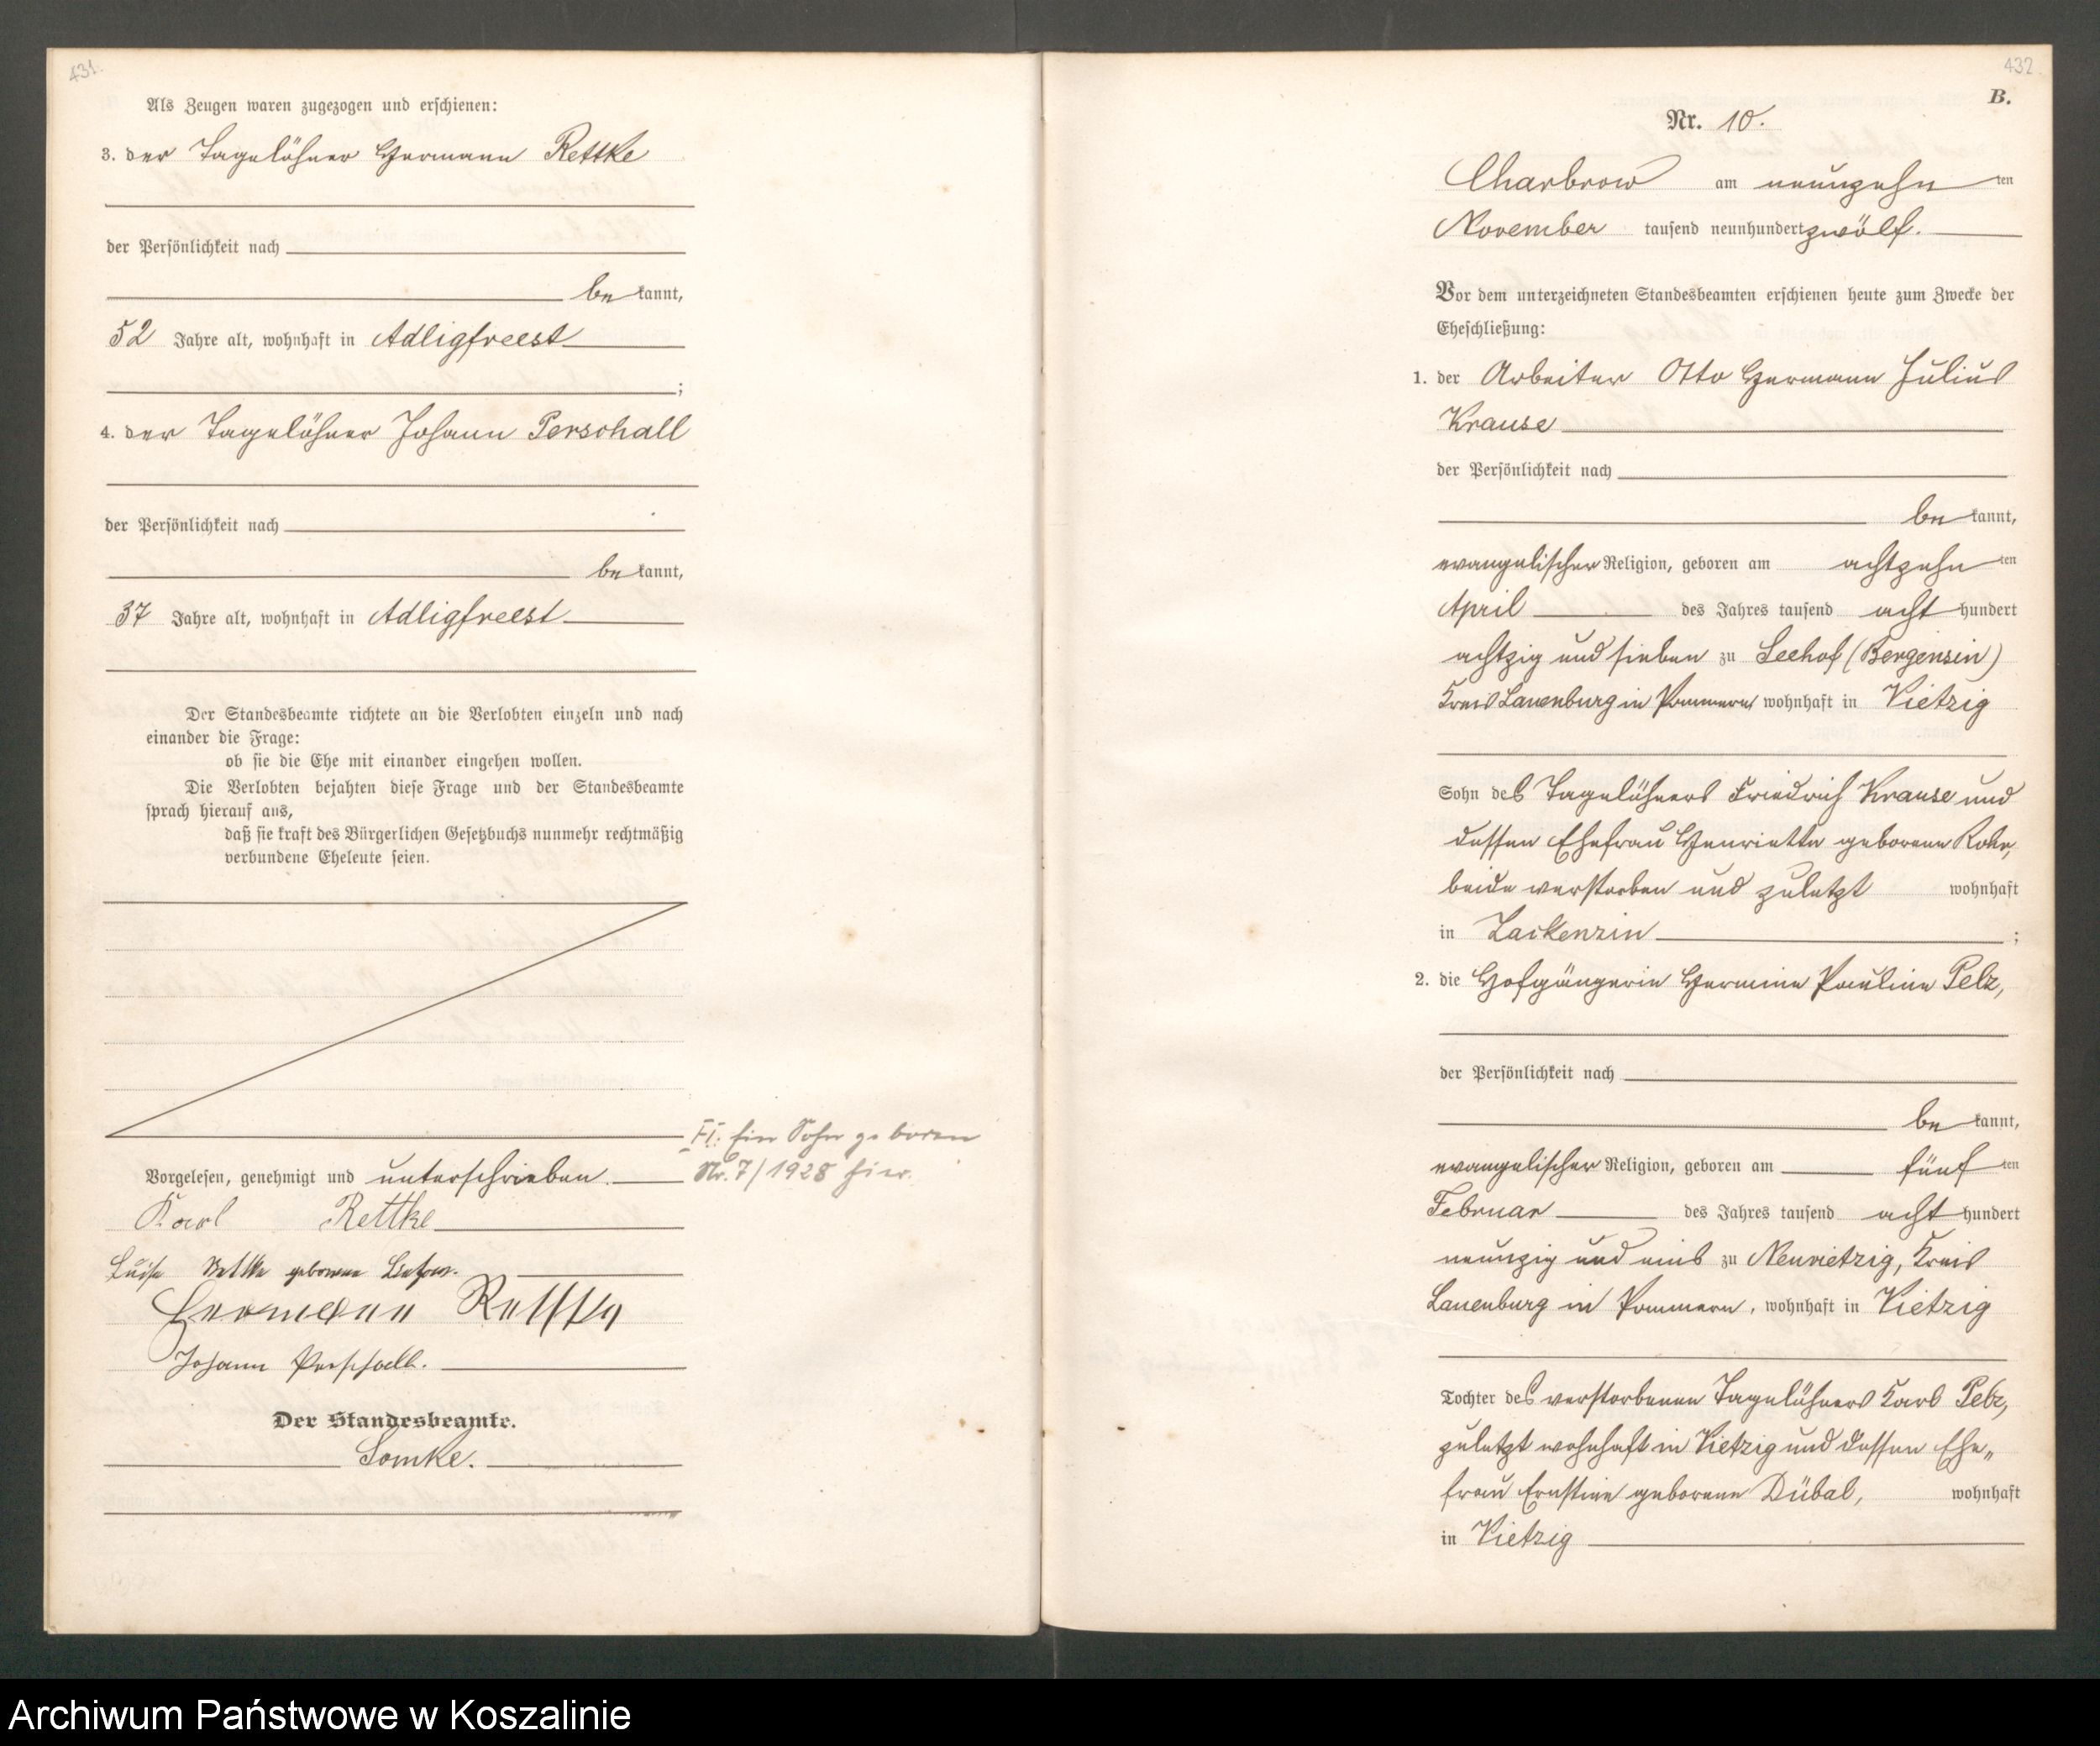 431.
Als Zeugen waren zugezogen und erschienen:
3. der Tagelöhner Hermann Rettke
der Persönlichkeit nach
be kannt,
52 Jahre alt, wohnhaft in Adligfreest
;
4. der Tagelöhner Johann Perschall
der Persönlichkeit nach
be kannt,
37 Jahre alt, wohnhaft in Adligfreest
Der Standesbeamte richtete an die Verlobten einzeln und nach
einander die Frage:
ob sie die Ehe mit einander eingehen wollen.
Die Verlobten bejahten diese Frage und der Standesbeamte
sprach hierauf aus,
daß sie kraft des Bürgerlichen Gesetzbuchs nunmehr rechtmäßig
verbundene Eheleute seien.
Ein Sohn geboren
Nr. 7/1928 hier.
Vorgelesen, genehmigt und unterschrieben.
Karl Rettke
Luise Rettke geborene
Hermann Rettke
Johann Perschall.
Der Standesbeamte.
Somke.
432.
B.
Nr. 10.
Charbrow am neunzehn ten
November tausend neunhundert zwölf.
Vor dem unterzeichneten Standesbeamten erschienen heute zum Zwecke der
Eheschließung:
1. der Arbeiter Otto Hermann Julius
Krause
der Persönlichkeit nach
be kannt,
evangelischer Religion, geboren am achtzehn ten
April des Jahres tausend acht hundert
achtzig und sieben zu Seehof (Bergensin)
Kreis Lauenburg in Pommern wohnhaft in Vietzig
Sohn des Tagelöhners Friedrich Krause und
dessen Ehefrau Henriette geborene Rohr,
beide verstorben und zuletzt wohnhaft
in Zackenzin ;
2. die Hofgängerin Hermine Pauline Pelz,
der Persönlichkeit nach
be kannt,
evangelischer Religion, geboren am fünf ten
Februar des Jahres tausend acht hundert
neunzig und eins zu Neuvietzig, Kreis
Lauenburg in Pommern, wohnhaft in Vietzig
Tochter des verstorbenen Tagelöhners Karl Pelz,
zuletzt wohnhaft in Vietzig und dessen Ehe„
frau Ernstine geborene Dübal, wohnhaft
in Vietzig
Archiwum Państwowe w Koszalinie